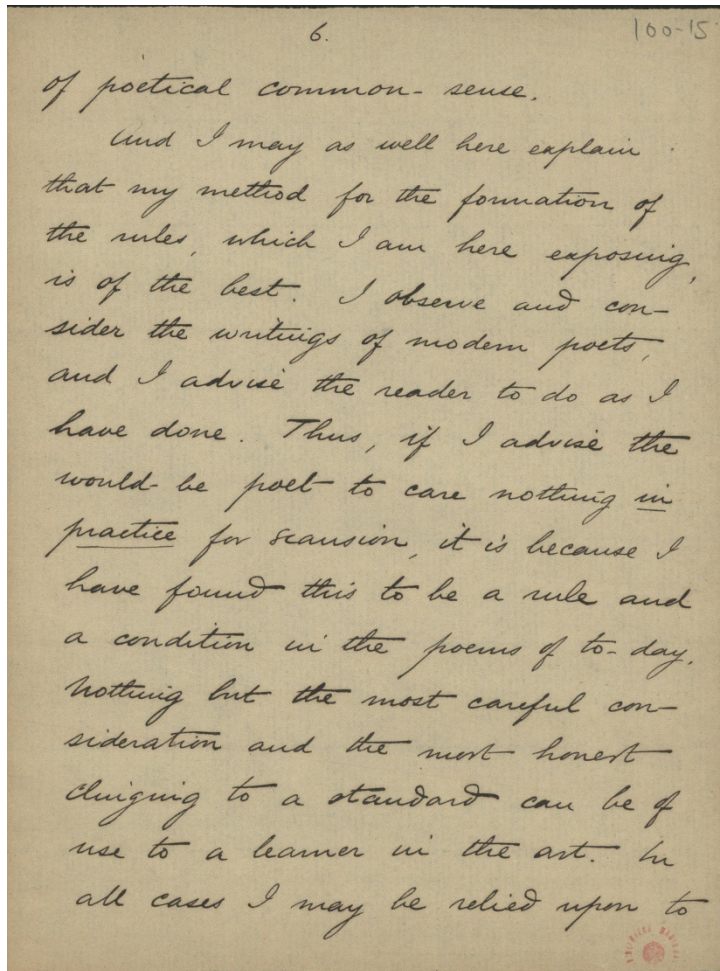 6.
100-15
of poetical common-sense.
And I may as well here explain
that my method for the formation of
the rules, which I am here exposing,
is of the best. I observe and con-
sider the writings of modern poets,
and I advise the reader to do as I
have done. Thus, if I advise the
would-be poet to care nothing in
practice for scansion, it is because I
have found this to be a rule and
a condition in the poems of to-day.
Nothing but the most careful con-
sideration and the most honest
clinging to a standard can be of
use to a learner in the art. In
all cases I may be relied upon to